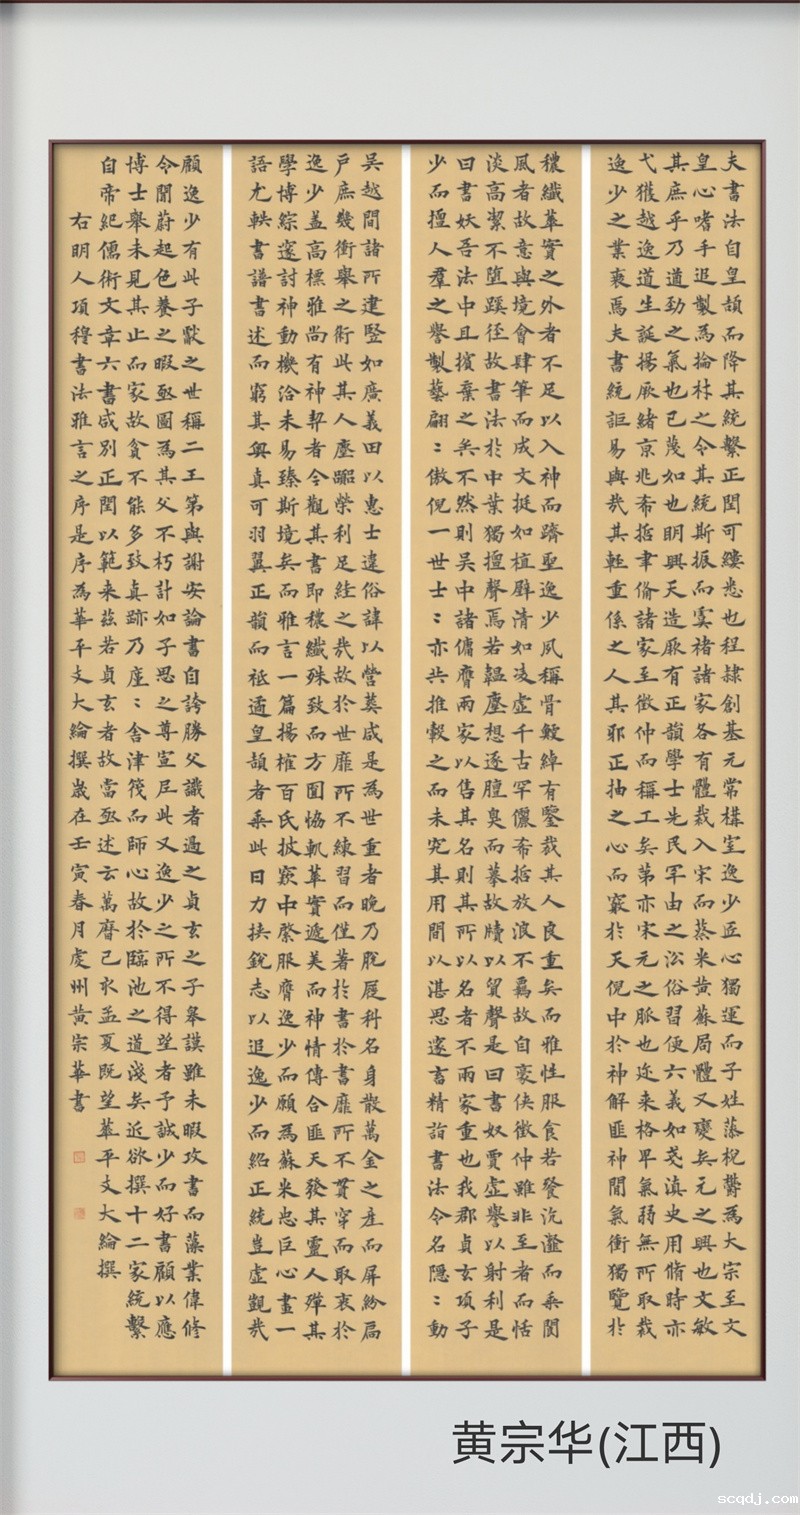 夫書法自皇頡而降其統繫正閏可縷悉也程隸創基元常構室逸少匠心獨運而子姓蒸枕欝為大宗至文
皇心嗜手追製為掄材之令其統斯振而虞褚諸家各有體裁入宋而蒸米黄蘇局體又褒矣元之興也文敏
其庶乎乃遒勁之氣也已蔑如也眀興天造厥有正韻學士先民罕由之沿俗習便六義如戔滇史用脩時亦
弋獲越逸道生誕揚厥緒京兆希哲聿脩諸家至徵仲而稱工矣第亦宋元之脈也迩来格卑氣弱無所取裁
逸少之業衰焉夫書統詎易與㢤其輊重係之人其邪正抽之心而竅扵天倪中扵神解匪神閒氣衝獨覽扵
穠纎華實之外者不足以入神而躋聖逸少夙稱骨鯁綽有鑒裁其人良重矣而雅性服食若發沆瀣而乘閬
風者故意與境會肆筆而成文挺如植壁清如凌虚千古罕儷希哲放浪不羈故自豪侠徵仲雖非至者而恬
淡高潔不墮蹊徑故書法扵中葉獨擅聲焉若韞塵想逐膻臭而摹故牘以貿聲是曰書奴賈虚譽以射利是
曰書妖吾法中且擯棄之矣不然則吴中諸傭賡兩家以售其名則其所以名者不兩家重也我郡貞玄項子
少而擅人羣之譽製藝翩〻傲倪一世士〻亦共推毂之而未究其用間以湛思邃言精詣書法令名隱〻動
吴越間諸所建竪如廣義田以惠士違俗諱以營葬咸是為世重者晚乃脱屣科名身散萬金之産而屏紛扃
戸庶幾衝舉之術此其人塵睨榮利足絓之㢤故扵世靡所不練習而僅著扵書扵書靡所不貫穿而取衷扵
逸少盖高標雅尚有神契者今觀其書即穠纎殊致而方圓恊軌華實遞美而神情傳合匪天發其靈人殫其
學博綜邃討神動機洽未易臻斯境矣而雅言一篇揚榷百氏披窾中綮服膺逸少而願為蘇米忠臣心畫一
語尤軼書譜書述而窮其奥真可羽翼正韻而祗遹皇頡者乘此日力挾銳志以追逸少而紹正統豈虚觀㢤
顧逸少有此子獻之世稱二王第與謝安論書自誇勝父識者過之貞玄之子皋謨雖未暇攻書而藻業偉修
令聞蔚起色養之暇亟圖為其父不朽計如子思之尊宣尼此又逸少之所不得望者予誠少而好書顧以應
博士舉未見其止而家故貪不能多致真跡乃廑〻舍津筏而師心故扵臨池之道淺矣近欲撰十二家統繫
自帝紀儒術文章六書咸别正閏以範来兹若貞玄者故當亟述云萬曆己亥孟夏既望華平支大綸撰
右眀人項穆書法雅言之序是序為華平支大綸撰嵗在壬寅春月虔州黄宗華書
黄宗华(江西)
scqdj.com